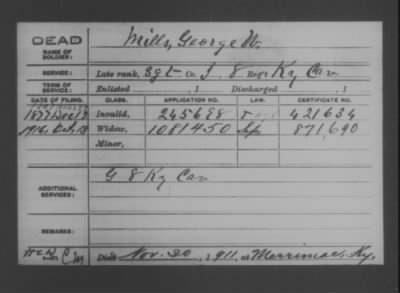 DEAD
NAME OF SOLDIER:
Mills, George W.
SERVICE:
Late rank, Sgt Co. I, 8 Reg't Ky Cav
TERM OF SERVICE:
Enlisted , 1 Discharged , 1
DATE OF FILING. CLASS. APPLICATION NO. LAW. CERTIFICATE NO.
1877 Dec 12 Invalid, 245698 421634
1916, Oct, 13 Widow, 1081450 871,690
Minor,
ADDITIONAL SERVICES:
G 8 Ky Cav
REMARKS:
Died Nov. 30, 1911, at Merrimac, Ky.